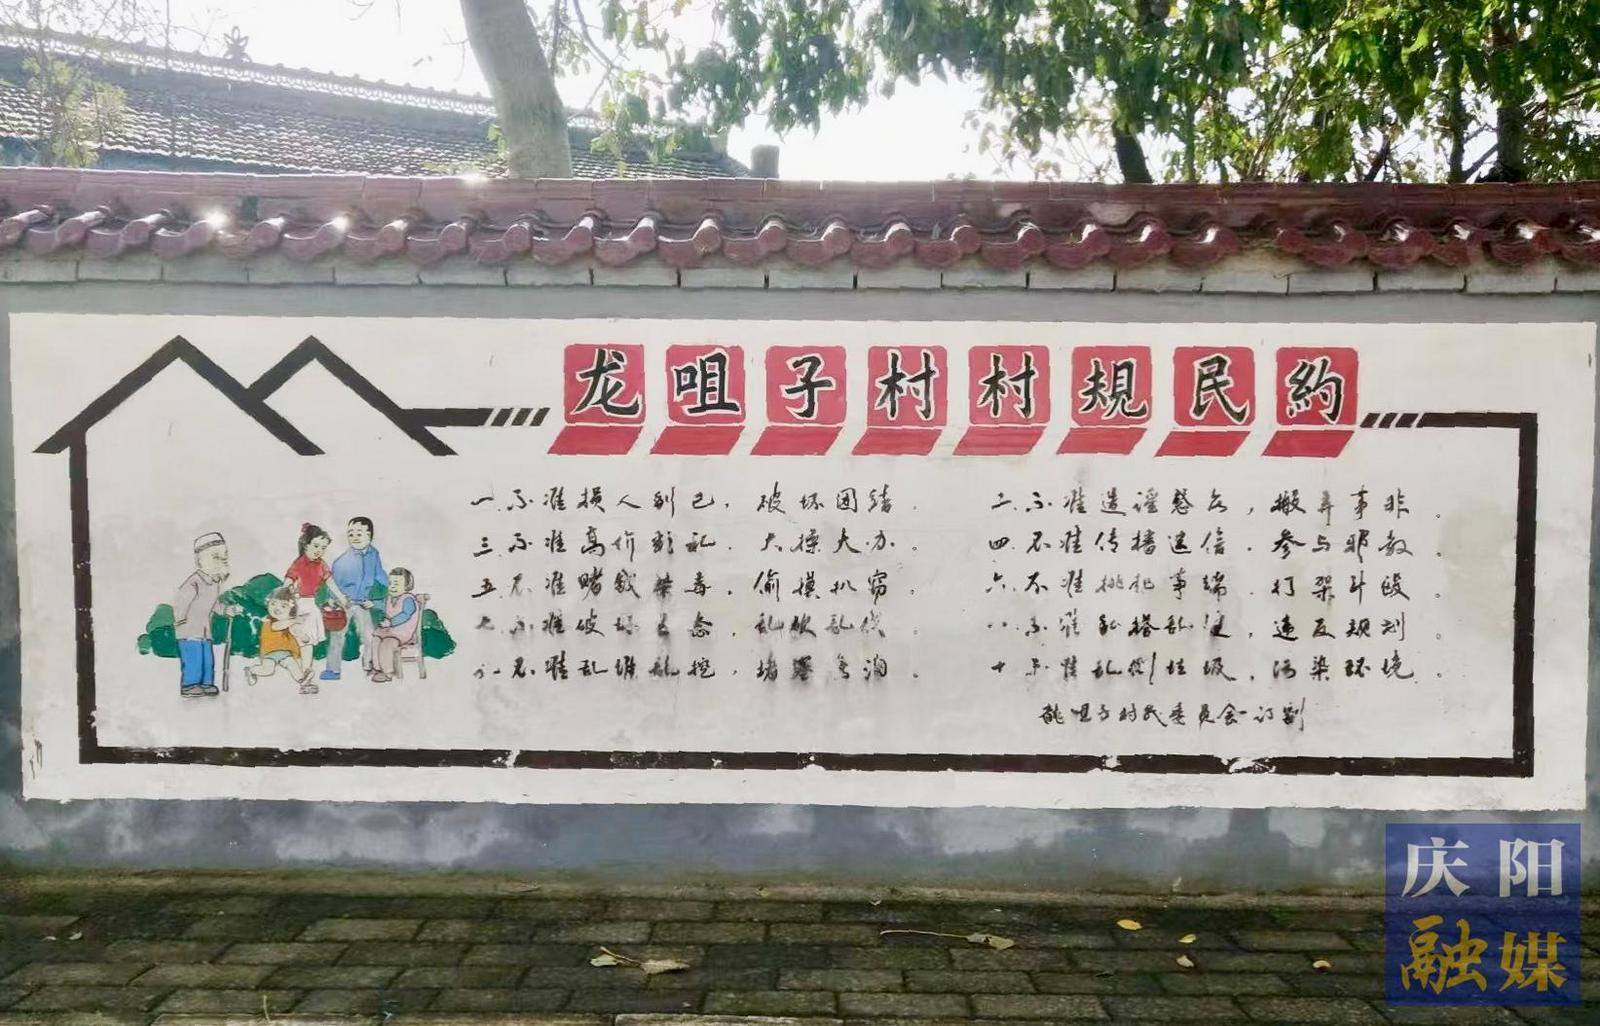 龙咀子村村規民約
一.不准损人利己，破坏团结.
二.不准造谣惑众，搬弄事非.
三.不准高价彩礼.大操大办.
四.不准传播迷信.参与邪教.
五.不准赌钱染毒，偷摸扒窃.
六.不准挑起事端.打架斗殴.
七.不准破坏生态，乱砍乱伐.
八.不准私搭乱建，违反规划.
九.不准乱堆乱挖，堵塞
十.不准乱倒垃圾，污染环境.
龙咀子村民委员会
庆阳
融媒